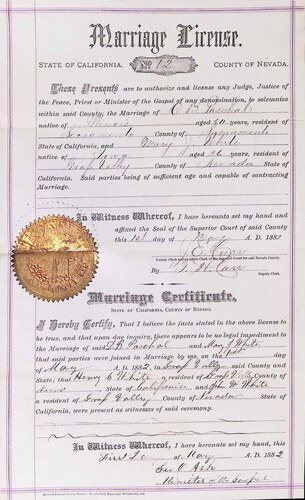 Marriage License.
STATE OF CALIFORNIA, No. 12 COUNTY OF NEVADA.
These Presents are to authorize and license any Judge, Justice of
the Peace, Priest or Minister of the Gospel of any denomination, to solemnize
within said County, the Marriage of
native of Illinois aged 30 years, resident of
Sacramento County of Sacramento
State of California, and Mary J White
native of Iowa aged 26 years, resident of
Grass Valley County of Nevada
State of California. Said parties being of sufficient age and capable of contracting
Marriage.
In Witness Whereof, I have hereunto set my hand and
affixed the Seal of the Superior Court of said County
this 1st day of May A. D. 1882
By
Deputy Clerk.
Marriage Certificate.
STATE OF CALIFORNIA, COUNTY OF NEVADA.
I Hereby Certify, That I believe the facts stated in the above license
to be true, and that upon due inquiry, there appears to be no legal impediment
to the Marriage of said and Mary J White
that said parties were joined in Marriage by me, on the 1st day of
May A. D. 1882, in Grass Vally said County and
State; that Henry E White a resident of Grass Vally County
State of California and John W White
a resident of Grass Vally, County of Nevada State of
California, were present as witnesses of said ceremony.
In Witness Whereof, I have hereunto set my hand, this
First day of May A. D. 1882
Geo O Ash
Minister of the Gospel